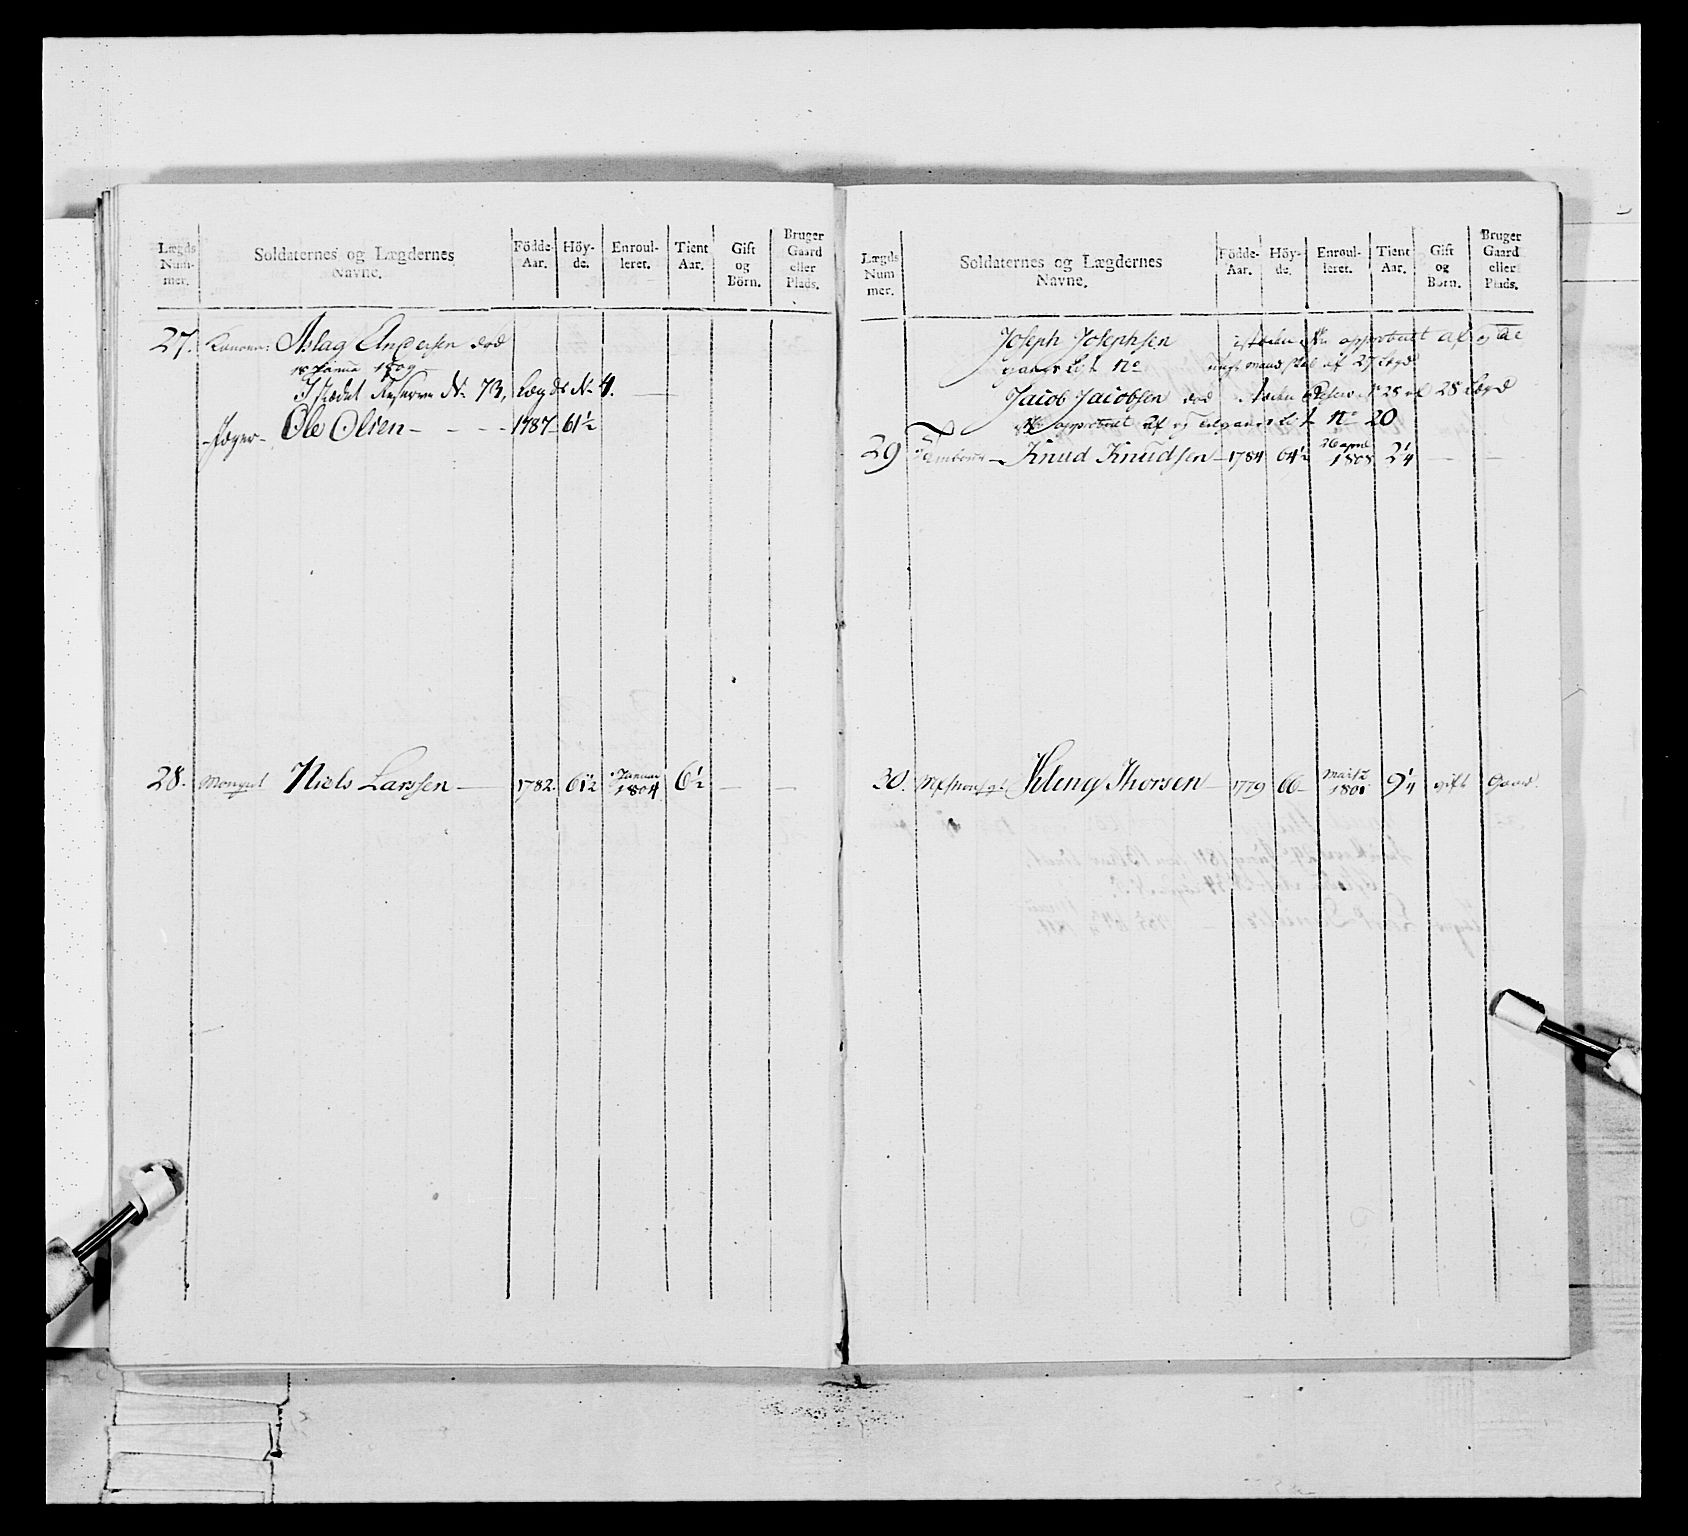 Lægds Num-mer.
Soldaternes og Lægdernes Navne.
Födde-Aar.
Höy-de.
Enroul-leret.
Tient Aar.
Gift og Börn.
Bruger Gaard eller Plads.
27. Aslag Andersen död
1809
I stædet Reserve No 73, Lægds No 4.
Jæger- Ole Olsen - - - 1787 61½
28. Niels Larssen — 1782 61½ Januar 1804 6½ — —
Lægds Num mer.
Soldaternes og Lægdernes Navne.
Födde-Aar.
Höy-de.
Enroul-leret.
Tient Aar.
Gift og Börn.
Bruger Gaard eller Plads.
Joseph Josephsen approberet af
No af 27 Lægd
Jacob Jacobsen död 28 Lægd
approberet af No 20
29 Tambour - Knud Knudsen - 1784 64½ 26 april 1808 2¼ — —
30. Kleng Thorsen - 1779 66 - Martz 1801 9¼ gift Gaard.